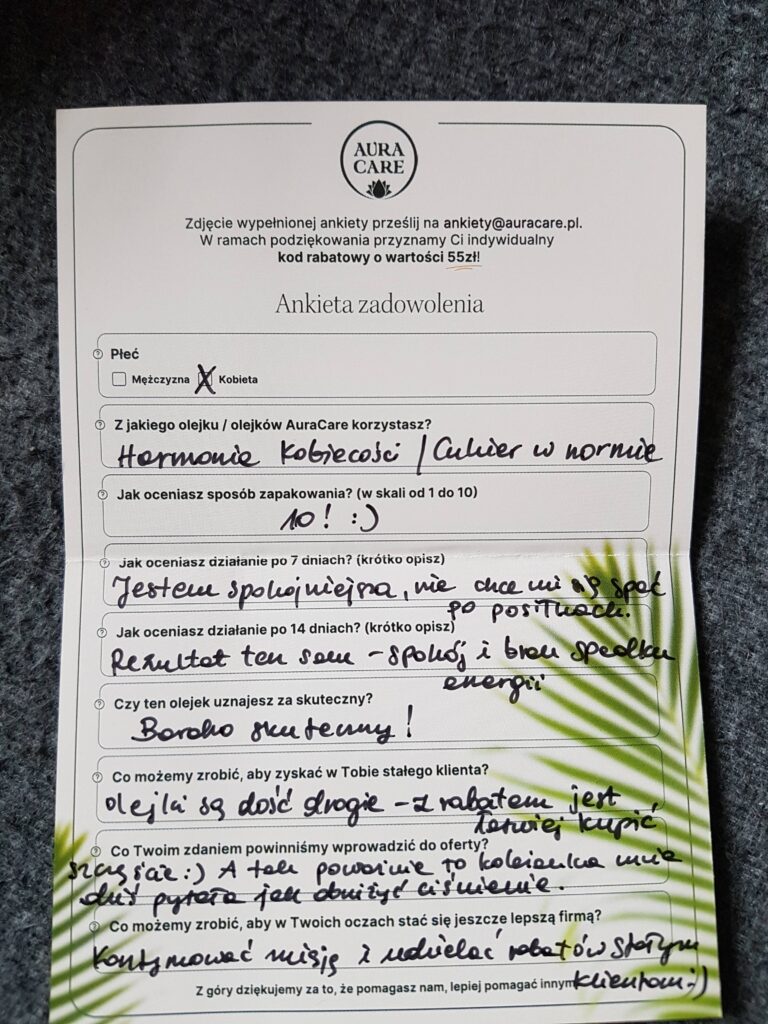 AURA
CARE
Zdjęcie wypełnionej ankiety prześlij na ankiety@auracare.pl.
W ramach podziękowania przyznamy Ci indywidualny
kod rabatowy o wartości 55zł!
Ankieta zadowolenia
Płeć
Mężczyzna X Kobieta
Z jakiego olejku / olejków AuraCare korzystasz?
Harmonia Kobiecości / Cukier w normie
Jak oceniasz sposób zapakowania? (w skali od 1 do 10)
10! :)
Jak oceniasz działanie po 7 dniach? (krótko opisz)
Jestem spokojniejsza, nie chce mi się spać
po posiłkach.
Jak oceniasz działanie po 14 dniach? (krótko opisz)
Rezultat ten sam - spokój i brak spadku
energii
Czy ten olejek uznajesz za skuteczny?
Bardzo skuteczny!
Co możemy zrobić, aby zyskać w Tobie stałego klienta?
Olejki są dość drogie - z rabatem jest
łatwiej kupić
Co Twoim zdaniem powinniśmy wprowadzić do oferty?
szczęście :) A tak poważnie to koleżanka mnie
dziś pytała jak obniżyć ciśnienie.
Co możemy zrobić, aby w Twoich oczach stać się jeszcze lepszą firmą?
Kontynuować misję i udzielać rabatów stałym
klientom :-)
Z góry dziękujemy za to, że pomagasz nam, lepiej pomagać innym